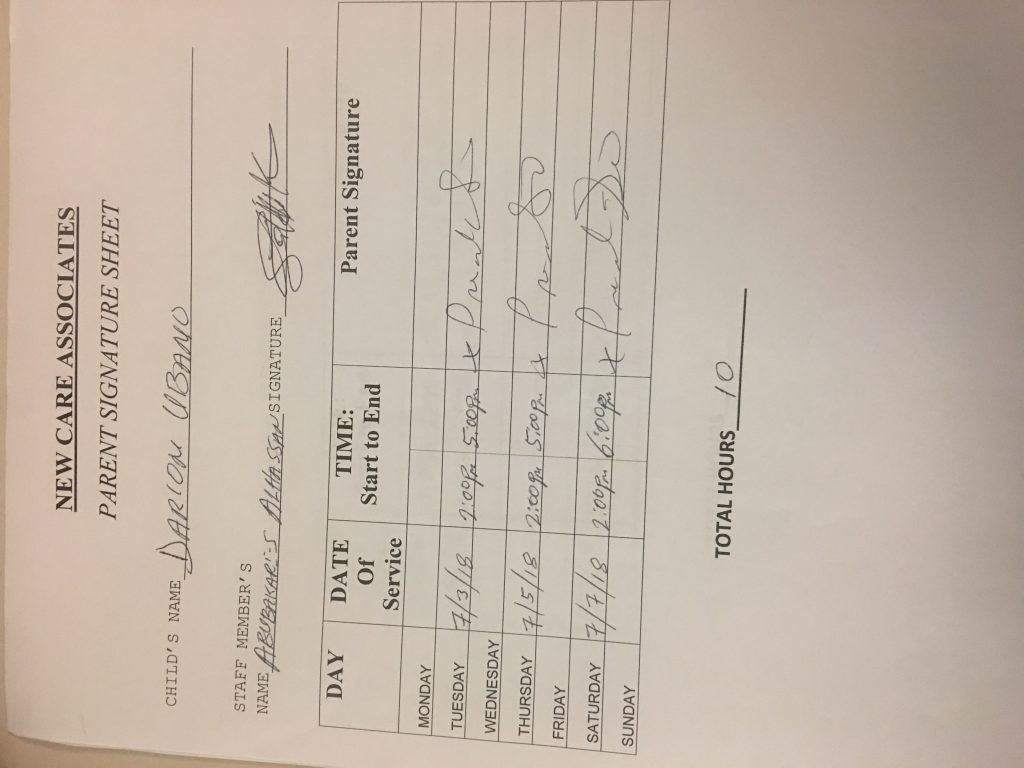 NEW CARE ASSOCIATES
PARENT SIGNATURE SHEET
CHILD'S NAME DARION UBANO
STAFF MEMBER'S
NAME ABUBAKARI-S ALHASSAN SIGNATURE
DAY DATE Of Service TIME: Start to End Parent Signature
MONDAY
TUESDAY 7/3/18 2:00pm 5:00pm x
WEDNESDAY
THURSDAY 7/5/18 2:00pm 5:00pm x
FRIDAY
SATURDAY 7/7/18 2:00pm 6:00pm x
SUNDAY
TOTAL HOURS 10